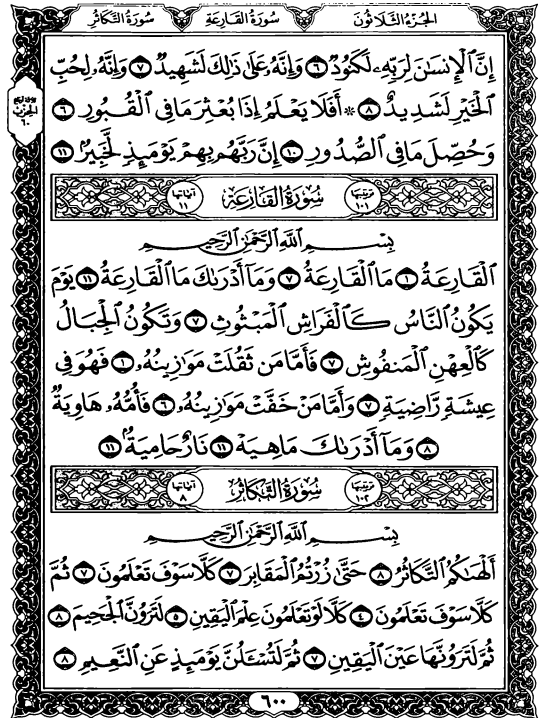 الجزء الثلاثون سورة القارعة سورة التكاثر
إِنَّ ٱلْإِنسَٰنَ لِرَبِّهِۦ لَكَنُودٌ ٦ وَإِنَّهُۥ عَلَىٰ ذَٰلِكَ لَشَهِيدٌ ٧ وَإِنَّهُۥ لِحُبِّ
ٱلْخَيْرِ لَشَدِيدٌ ٨ * أَفَلَا يَعْلَمُ إِذَا بُعْثِرَ مَا فِى ٱلْقُبُورِ ٦
وَحُصِّلَ مَا فِى ٱلصُّدُورِ ١٠ إِنَّ رَبَّهُم بِهِمْ يَوْمَئِذٍ لَّخَبِيرٌۢ ١١
ترتيبها ١٠١ سورة القارعة آياتها ١١
بِسْمِ ٱللَّهِ ٱلرَّحْمَٰنِ ٱلرَّحِيمِ
ٱلْقَارِعَةُ ١ مَا ٱلْقَارِعَةُ ٧ وَمَآ أَدْرَىٰكَ مَا ٱلْقَارِعَةُ ١١ يَوْمَ
يَكُونُ ٱلنَّاسُ كَٱلْفَرَاشِ ٱلْمَبْثُوثِ ٧ وَتَكُونُ ٱلْجِبَالُ
كَٱلْعِهْنِ ٱلْمَنفُوشِ ٧ فَأَمَّا مَن ثَقُلَتْ مَوَٰزِينُهُۥ ١ فَهُوَ فِى
عِيشَةٍ رَّاضِيَةٍ ٧ وَأَمَّا مَنْ خَفَّتْ مَوَٰزِينُهُۥ ٦ فَأُمُّهُۥ هَاوِيَةٌ
٨ وَمَآ أَدْرَىٰكَ مَا هِيَهْ ١١ نَارٌ حَامِيَةٌۢ ١١
ترتيبها ١٠٢ سورة التكاثر آياتها ٨
بِسْمِ ٱللَّهِ ٱلرَّحْمَٰنِ ٱلرَّحِيمِ
أَلْهَىٰكُمُ ٱلتَّكَاثُرُ ٨ حَتَّىٰ زُرْتُمُ ٱلْمَقَابِرَ ٧ كَلَّا سَوْفَ تَعْلَمُونَ ٧ ثُمَّ
كَلَّا سَوْفَ تَعْلَمُونَ ٤ كَلَّا لَوْ تَعْلَمُونَ عِلْمَ ٱلْيَقِينِ ٥ لَتَرَوُنَّ ٱلْجَحِيمَ ٨
ثُمَّ لَتَرَوُنَّهَا عَيْنَ ٱلْيَقِينِ ٧ ثُمَّ لَتُسْـَٔلُنَّ يَوْمَئِذٍ عَنِ ٱلنَّعِيمِ ٨
٦٠٠